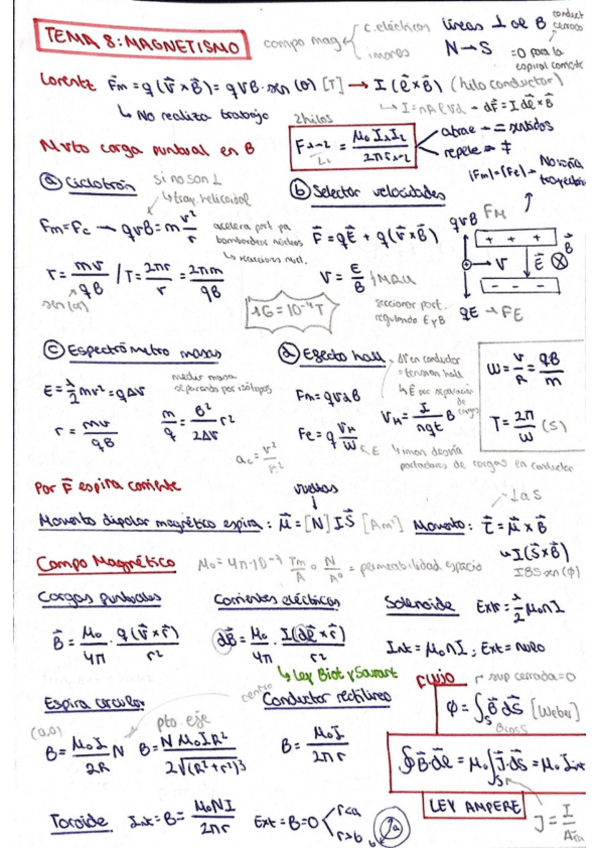 TEMA 8: MAGNETISMO
campo mag
c. eléctricos
imanes
líneas ⊥ de B
N → S
conduct cerrado
=0 para la espiral corriente
Lorentz F⃗m = q(v⃗ × B⃗) = qvB · sen(θ) [T] → I(ℓ⃗ × B⃗) (hilo conductor)
↳ No realiza trabajo
↳ I = nAqvd → dF⃗ = I dℓ⃗ × B⃗
2 hilos
F₁₋₂/L₂ = μ₀I₁I₂/2πr₁₋₂
atrae → = sentidos
repele → ≠
Mvto carga puntual en B
|Fm| = |Fe| → No varía trayectoria
ⓐ Ciclotrón
si no son ⊥
↳ tray. helicoidal
Fm = Fc → qvB = m v²/r
acelera part. pa bombardear núcleos
↳ reacciones nucl.
r = mv/qB / T = 2πr/v = 2πm/qB
sen(α)
ⓑ Selector velocidades
F⃗ = qE⃗ + q(v⃗ × B⃗)
v = E/B
MRU
seccionar part. regulando E y B
1G = 10⁻⁴ T
qvB FM
+ + +
v⃗ E⃗ B⃗
- - -
qE → FE
ⓒ Espectrómetro masas
E = 1/2 mv² = qΔV
medir masa separando por isótopos
r = mv/qB
m/q = B²/2ΔV r²
ⓓ Efecto hall
ΔV en conductor = tensión hall
↳ E por separación de cargas
Fm = qvdB
Fe = q V_H/w
E
V_H = I/nqt B
↳ iman desvía portadores de cargas en conductor
ω = v/R = qB/m
T = 2π/ω (s)
Por F⃗ espira corriente
vueltas
Momento dipolar magnético espira: μ⃗ = [N] I S⃗ [Am²] Momento: τ⃗ = μ⃗ × B⃗
⊥ a S
↳ I(S⃗ × B⃗)
IBS sen(φ)
Campo Magnético μ₀ = 4π·10⁻⁷ Tm/A o N/A² = permeabilidad espacio
Cargas puntuales
B⃗ = μ₀/4π · q(v⃗ × r⃗)/r²
Corrientes eléctricas
dB⃗ = μ₀/4π · I(dℓ⃗ × r⃗)/r²
↳ Ley Biot y Savart
Solenoide Extr = 1/2 μ₀nI
Int = μ₀nI ; Ext = nulo
Espira circular
centro
(0,0)
pto eje
B = μ₀I/2R N B = Nμ₀IR²/2√(R²+r²)³
Conductor rectilíneo
B = μ₀I/2πr
FLUJO
sup cerrada = 0
φ = ∫s B⃗ dS⃗ [Weber]
B cos S
∮ B⃗ · dℓ⃗ = μ₀ ∫s J⃗ · dS⃗ = μ₀ Iint
LEY AMPERE
J = I/Área
Toroide Int = B = μ₀NI/2πr Ext = B = 0
r<a
r>b
b a